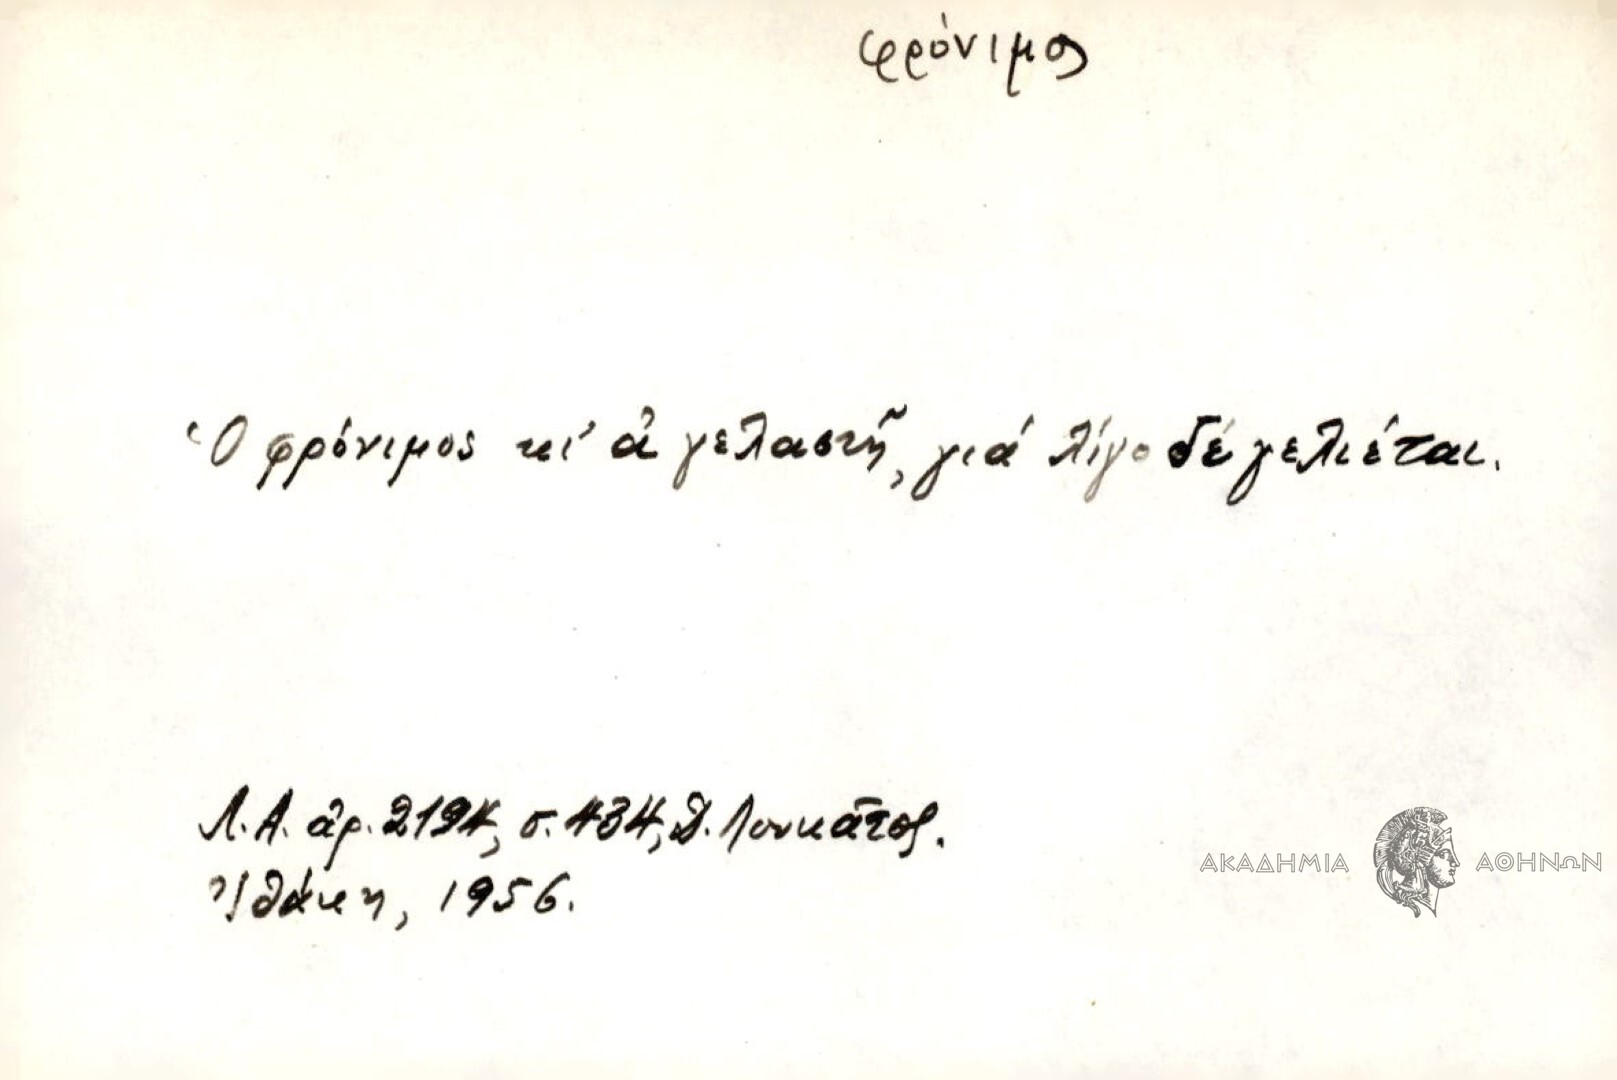 φρόνιμος
Ὁ φρόνιμος κι' ἄ γελαστῆ, γιά λίγο δέ γελιέται.
Λ.Α. ἀρ. 2194, σ. 434, Δ. Λουκᾶτος.
Ἰθάκη, 1956.
ΑΚΑΔΗΜΙΑ ΑΘΗΝΩΝ